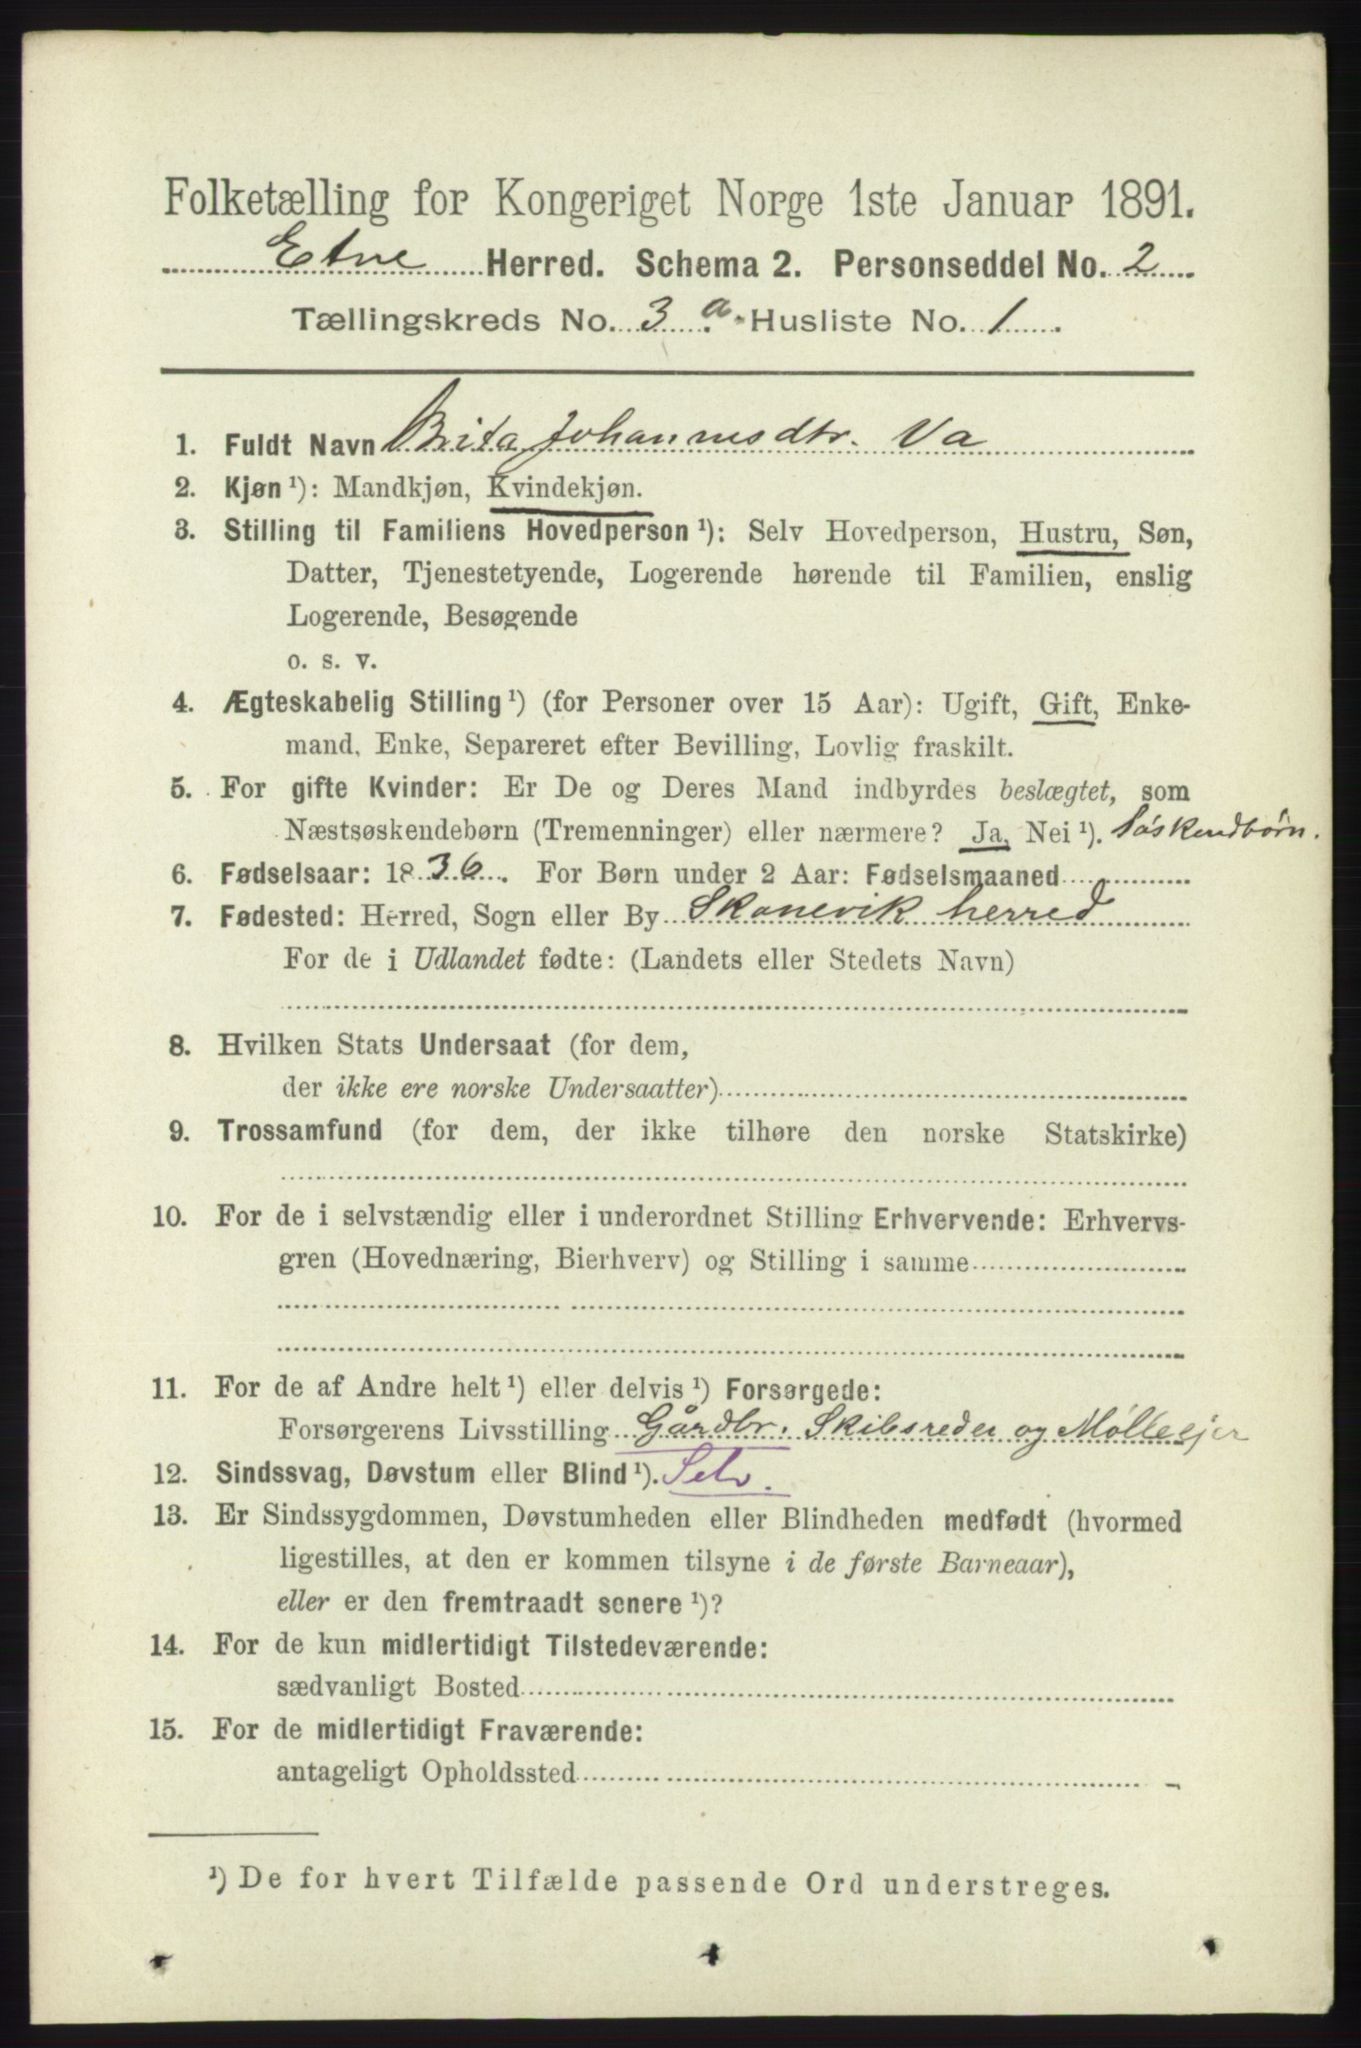 Folketælling for Kongeriget Norge 1ste Januar 1891.
Etne Herred. Schema 2. Personseddel No. 2
Tællingskreds No. 3 a. Husliste No. 1
1. Fuldt Navn Brita Johannesdtr. Va
2. Kjøn¹): Mandkjøn, Kvindekjøn.
3. Stilling til Familiens Hovedperson¹): Selv Hovedperson, Hustru, Søn,
Datter, Tjenestetyende, Logerende hørende til Familien, enslig
Logerende, Besøgende
o. s. v.
4. Ægteskabelig Stilling¹) (for Personer over 15 Aar): Ugift, Gift, Enke-
mand, Enke, Separeret efter Bevilling, Lovlig fraskilt.
5. For gifte Kvinder: Er De og Deres Mand indbyrdes beslægtet, som
Næstsøskendebørn (Tremenninger) eller nærmere? Ja, Nei¹). Søskendbørn.
6. Fødselsaar: 1836. For Børn under 2 Aar: Fødselsmaaned
7. Fødested: Herred, Sogn eller By Skonevik herred
For de i Udlandet fødte: (Landets eller Stedets Navn)
8. Hvilken Stats Undersaat (for dem,
der ikke ere norske Undersaatter)
9. Trossamfund (for dem, der ikke tilhøre den norske Statskirke)
10. For de i selvstændig eller i underordnet Stilling Erhvervende: Erhvervs-
gren (Hovednæring, Bierhverv) og Stilling i samme
11. For de af Andre helt¹) eller delvis¹) Forsørgede:
Forsørgerens Livsstilling Gårdbr. Skibsreder og Mølleejer
12. Sindssvag, Døvstum eller Blind¹). Selv.
13. Er Sindssygdommen, Døvstumheden eller Blindheden medfødt (hvormed
ligestilles, at den er kommen tilsyne i de første Barneaar),
eller er den fremtraadt senere¹)?
14. For de kun midlertidigt Tilstedeværende:
sædvanligt Bosted
15. For de midlertidigt Fraværende:
antageligt Opholdssted
¹) De for hvert Tilfælde passende Ord understreges.